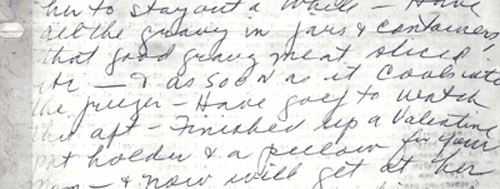 her to stay out a while – Have
all the gravy in jars & containers,
that good gravy meat sliced
etc – & as soon as it cools into
the freezer – Have goey to watch
this aft – Finished up a Valentine
pot holder & a pillow for your
Mom – & now will get at her